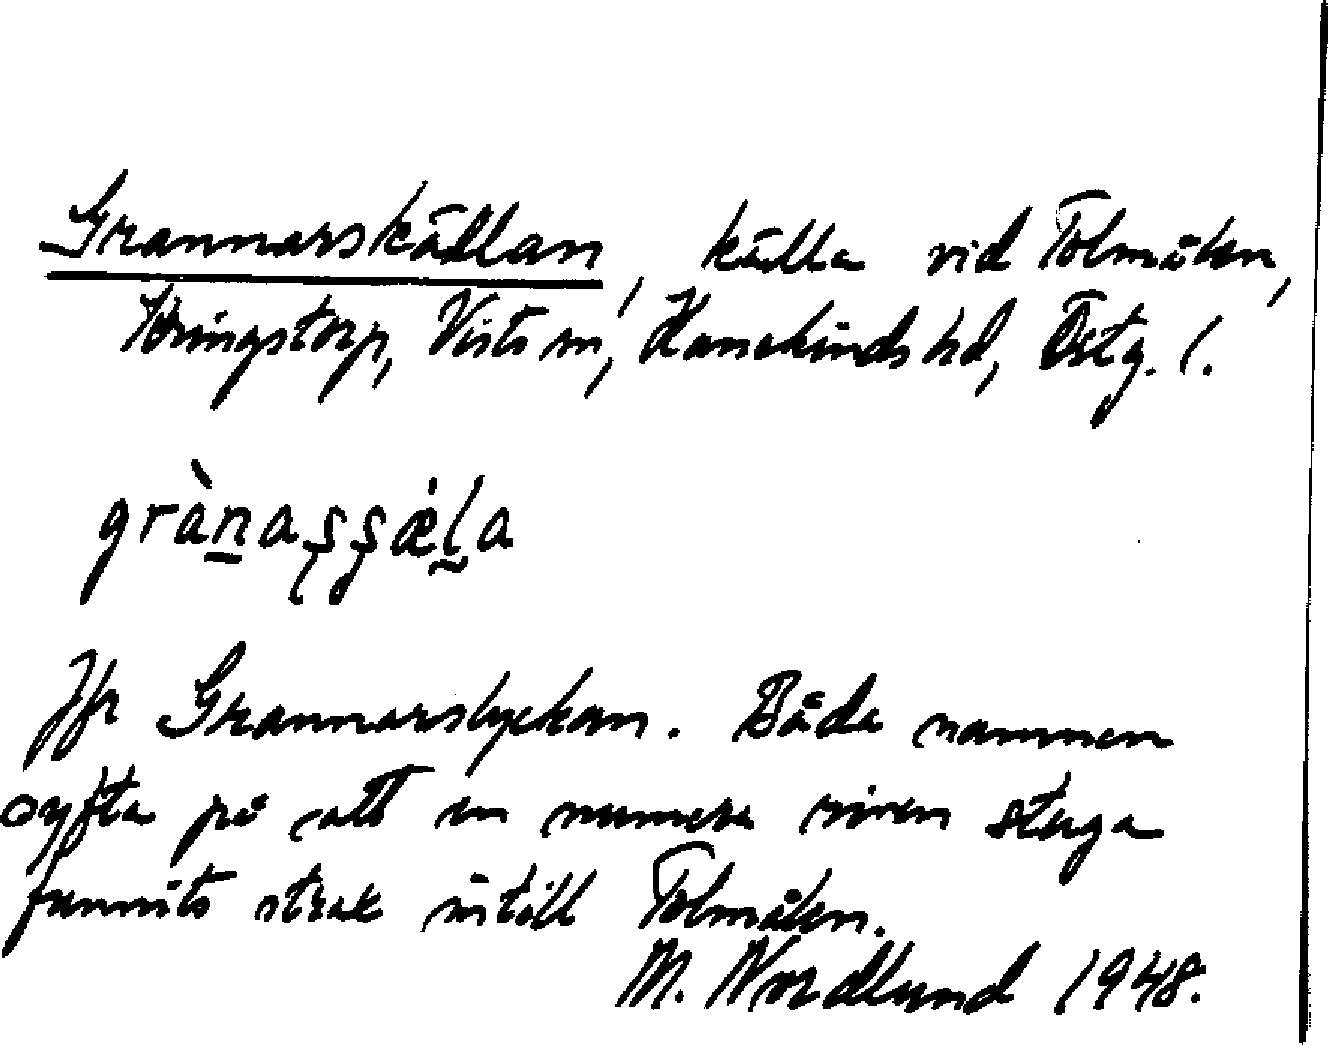 Grannarskällan, källa vid Tolmålen,
Hringstorp, Vists sn, Hanekinds hd, Östg. l.
grànaʂʂæ̀ḷa
Jfr Grannarslyckan. Båda namnen
syfta på att en numera riven stuga
funnits strax intill Tolmålen.
M. Nordlund 1948.